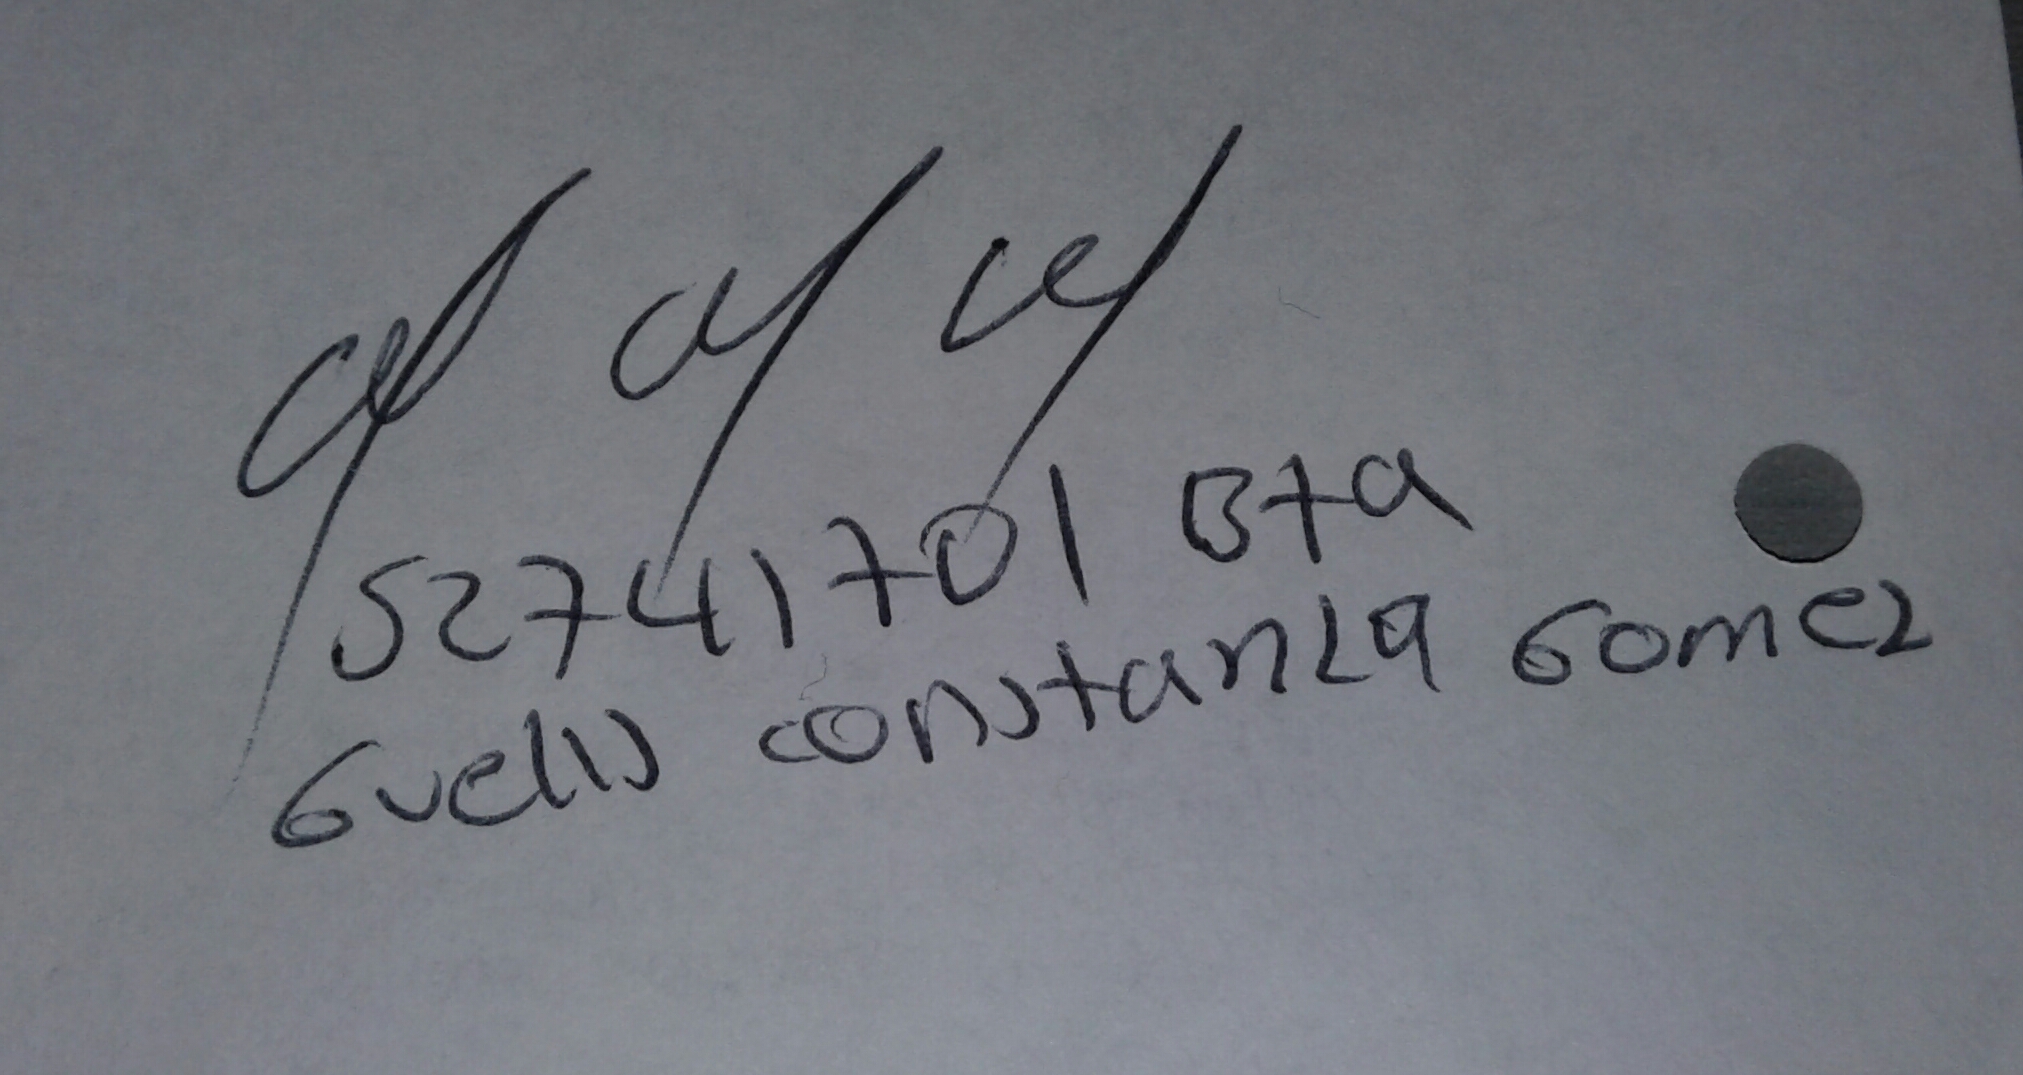 52741701 Bta
Guelis constanza Gomez